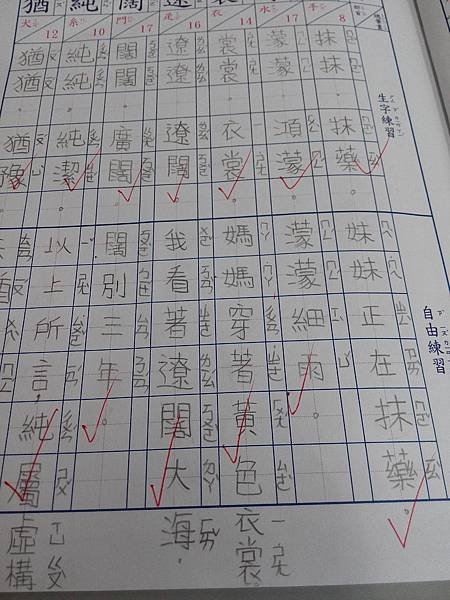 生字練習
自由練習
手
8
抹
抹
抹藥。
妹妹正在抹藥。
水
17
濛
濛
澒濛。
濛濛細雨。
裳
衣
14
裳
裳
衣裳。
媽媽穿著黃色衣裳。
遼
辵
16
遼
遼
遼闊。
我看著遼闊大海。
闊
門
17
闊
闊
廣闊。
闊別三年。
純
糸
10
純
純
純潔。
以上所言,純屬虛構
猶
犬
12
猶
猶
猶豫。